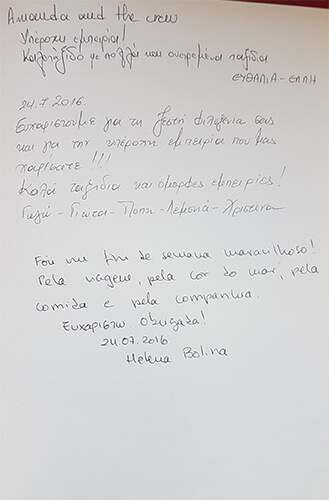 Amanda and the crew
Υπέροχη εμπειρία!
Καλοτάξιδο με πολλά και ονειρεμένα ταξίδια
ΕΥΘΑΛΙΑ - ΕΛΛΗ
24.7.2016.
Ευχαριστούμε για τη ζεστή φιλοξενία σας
και για την υπέροχη εμπειρία που μας
χαρίσατε!!!
Καλά ταξίδια και όμορφες εμπειρίες!
Γωγώ - Γιώτα - Πόπη - Λεμονιά - Χριστίνα
Foi um fim de semana maravilhoso!
Pela viagem, pela cor do mar, pela
comida e pela companhia.
Ευχαριστώ Obrigada!
24.07.2016
Helena Bolina